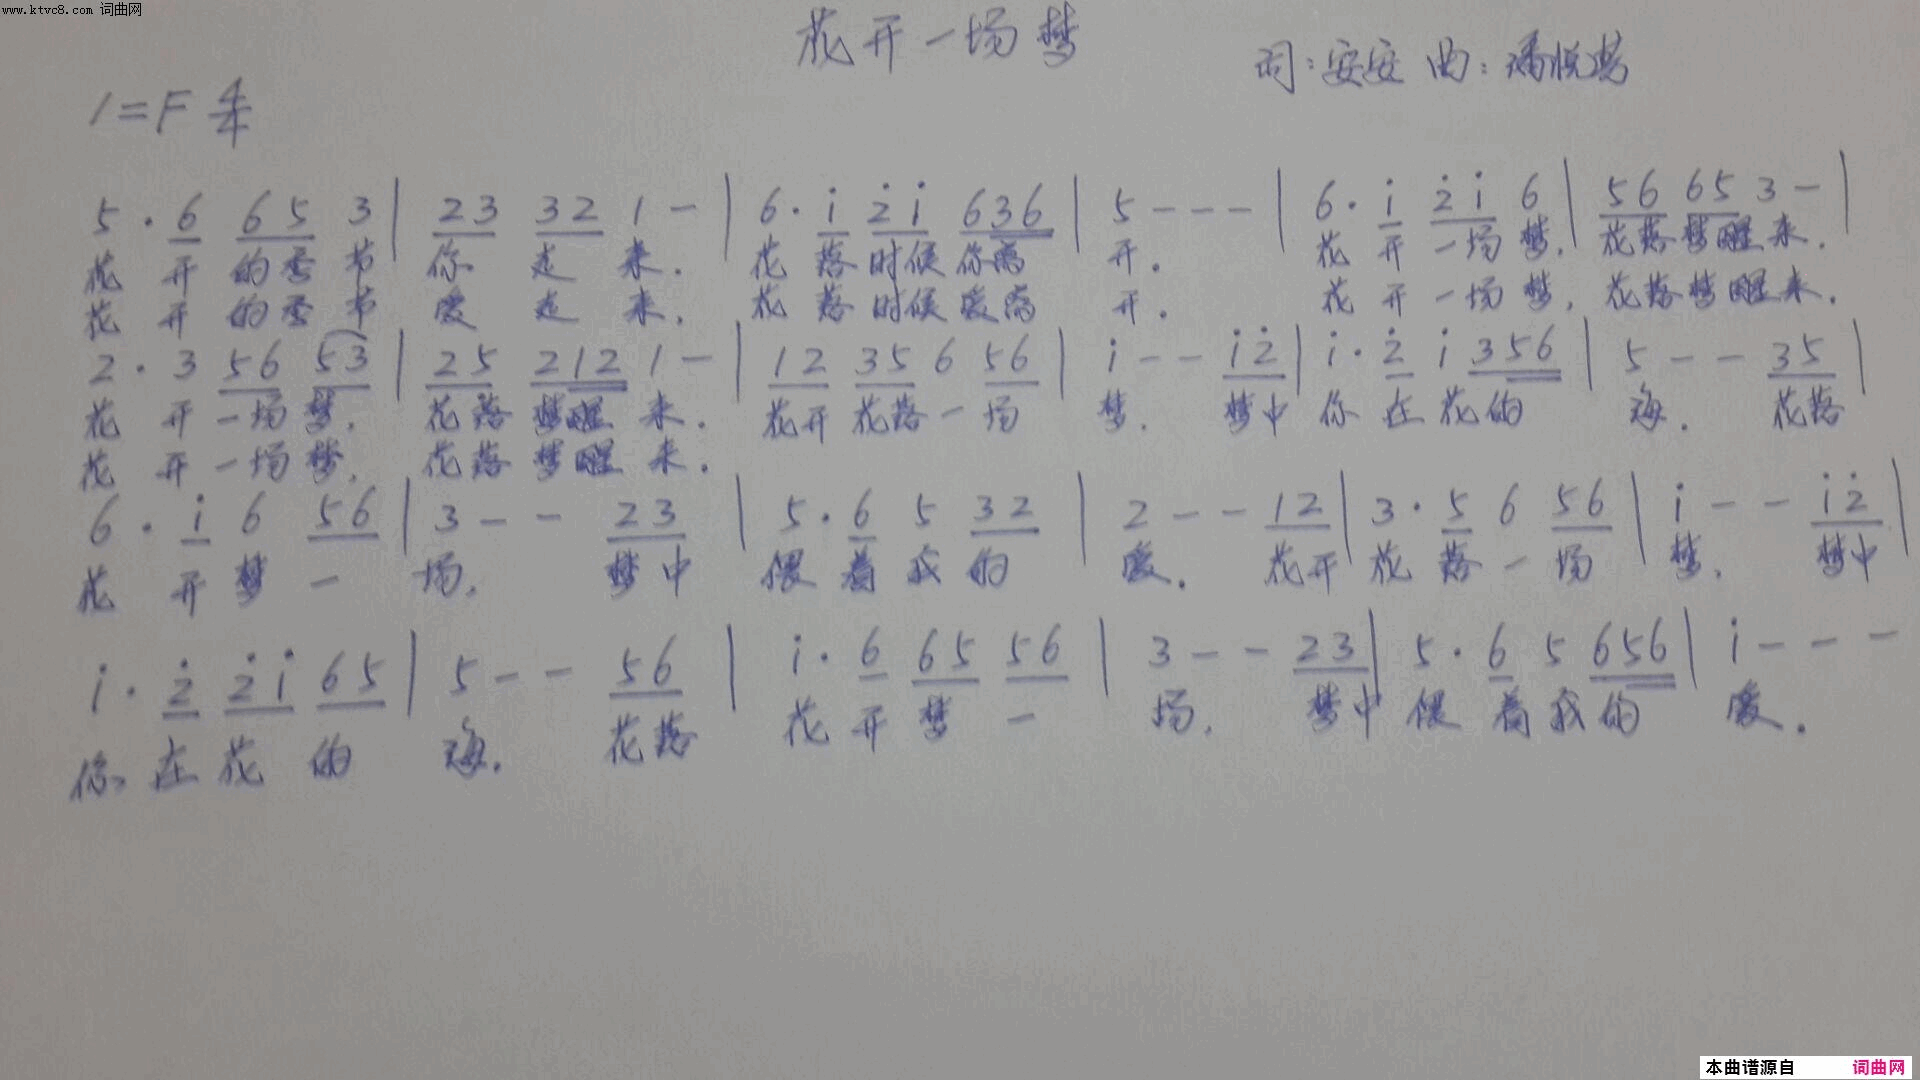 www.ktvc8.com 词曲网
花开一场梦
词:安安 曲:潘悦
1=F 4/4
5 · 6 65 3 | 23 32 1 - | 6 · i̇ 2̇i̇ 636 | 5 - - - | 6 · i̇ 2̇i̇ 6 | 56 65 3 - |
花 开 的季 节 你 走 来. 花 落 时候 你离 开. 花 开 一场 梦. 花落 梦醒 来.
花 开 的季 节 爱 走 来. 花 落 时候 爱离 开. 花 开 一场 梦, 花落 梦醒 来.
2 · 3 56 53 | 25 212 1 - | 12 35 6 56 | i̇ - - i̇2̇ | i̇ · 2̇ i̇ 356 | 5 - - 35 |
花 开 一场 梦. 花落 梦醒 来. 花开 花落 一 场 梦. 梦中 你 在 花 的 海. 花落
花 开 一场 梦. 花落 梦醒 来.
6 · i̇ 6 56 | 3 - - 23 | 5 · 6 5 32 | 2 - - 12 | 3 · 5 6 56 | i̇ - - i̇2̇ |
花 开 梦 一 场. 梦中 偎 着 我 的 爱. 花开 花 落 一 场 梦. 梦中
i̇ · 2̇ 2̇i̇ 65 | 5 - - 56 | i̇ · 6 65 56 | 3 - - 23 | 5 · 6 5 656 | i̇ - - -
你 在 花 的 海. 花落 花 开 梦 一 场. 梦中 偎 着 我 的 爱.
本曲谱源自 词曲网